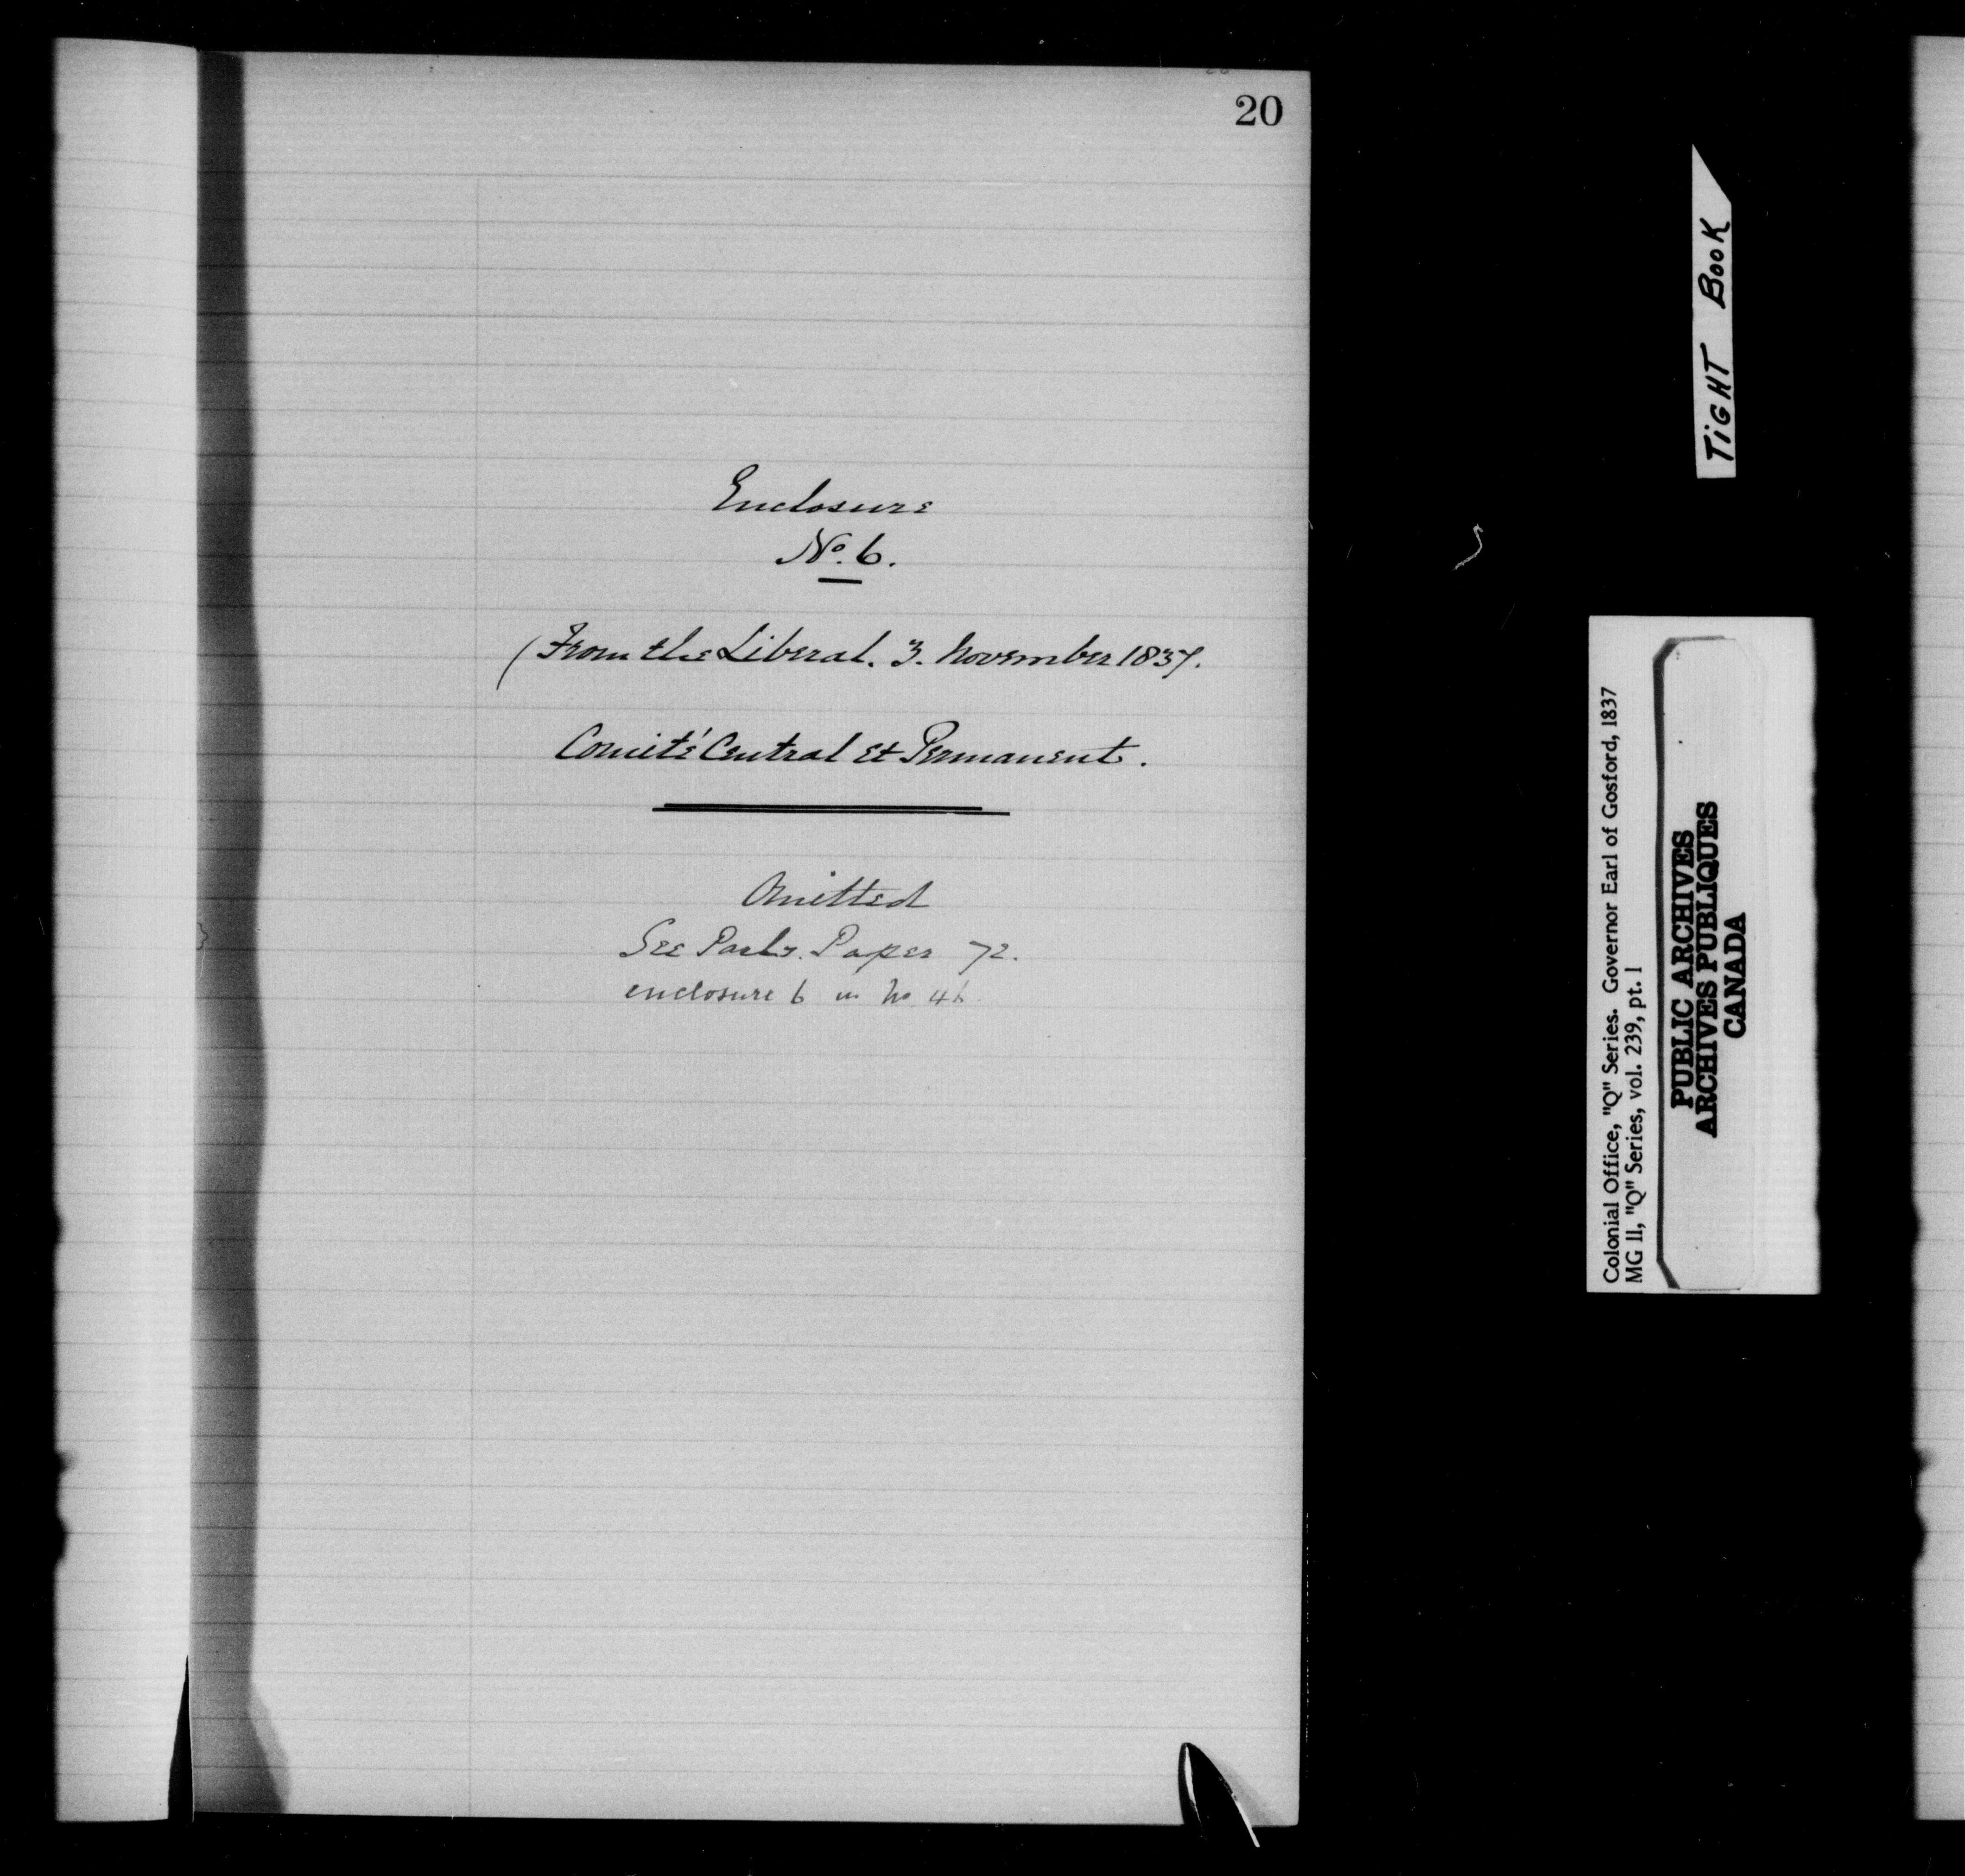 20
Enclosure
No. 6.
(From the Liberal. 3. November 1837.
Comité Central et Permanent.
Omitted
See Parly. Paper 72.
enclosure 6 in No 46.
TIGHT BOOK
Colonial Office, "Q" Series. Governor Earl of Gosford, 1837
MG 11, "Q" Series, vol. 239, pt. 1
PUBLIC ARCHIVES
ARCHIVES PUBLIQUES
CANADA